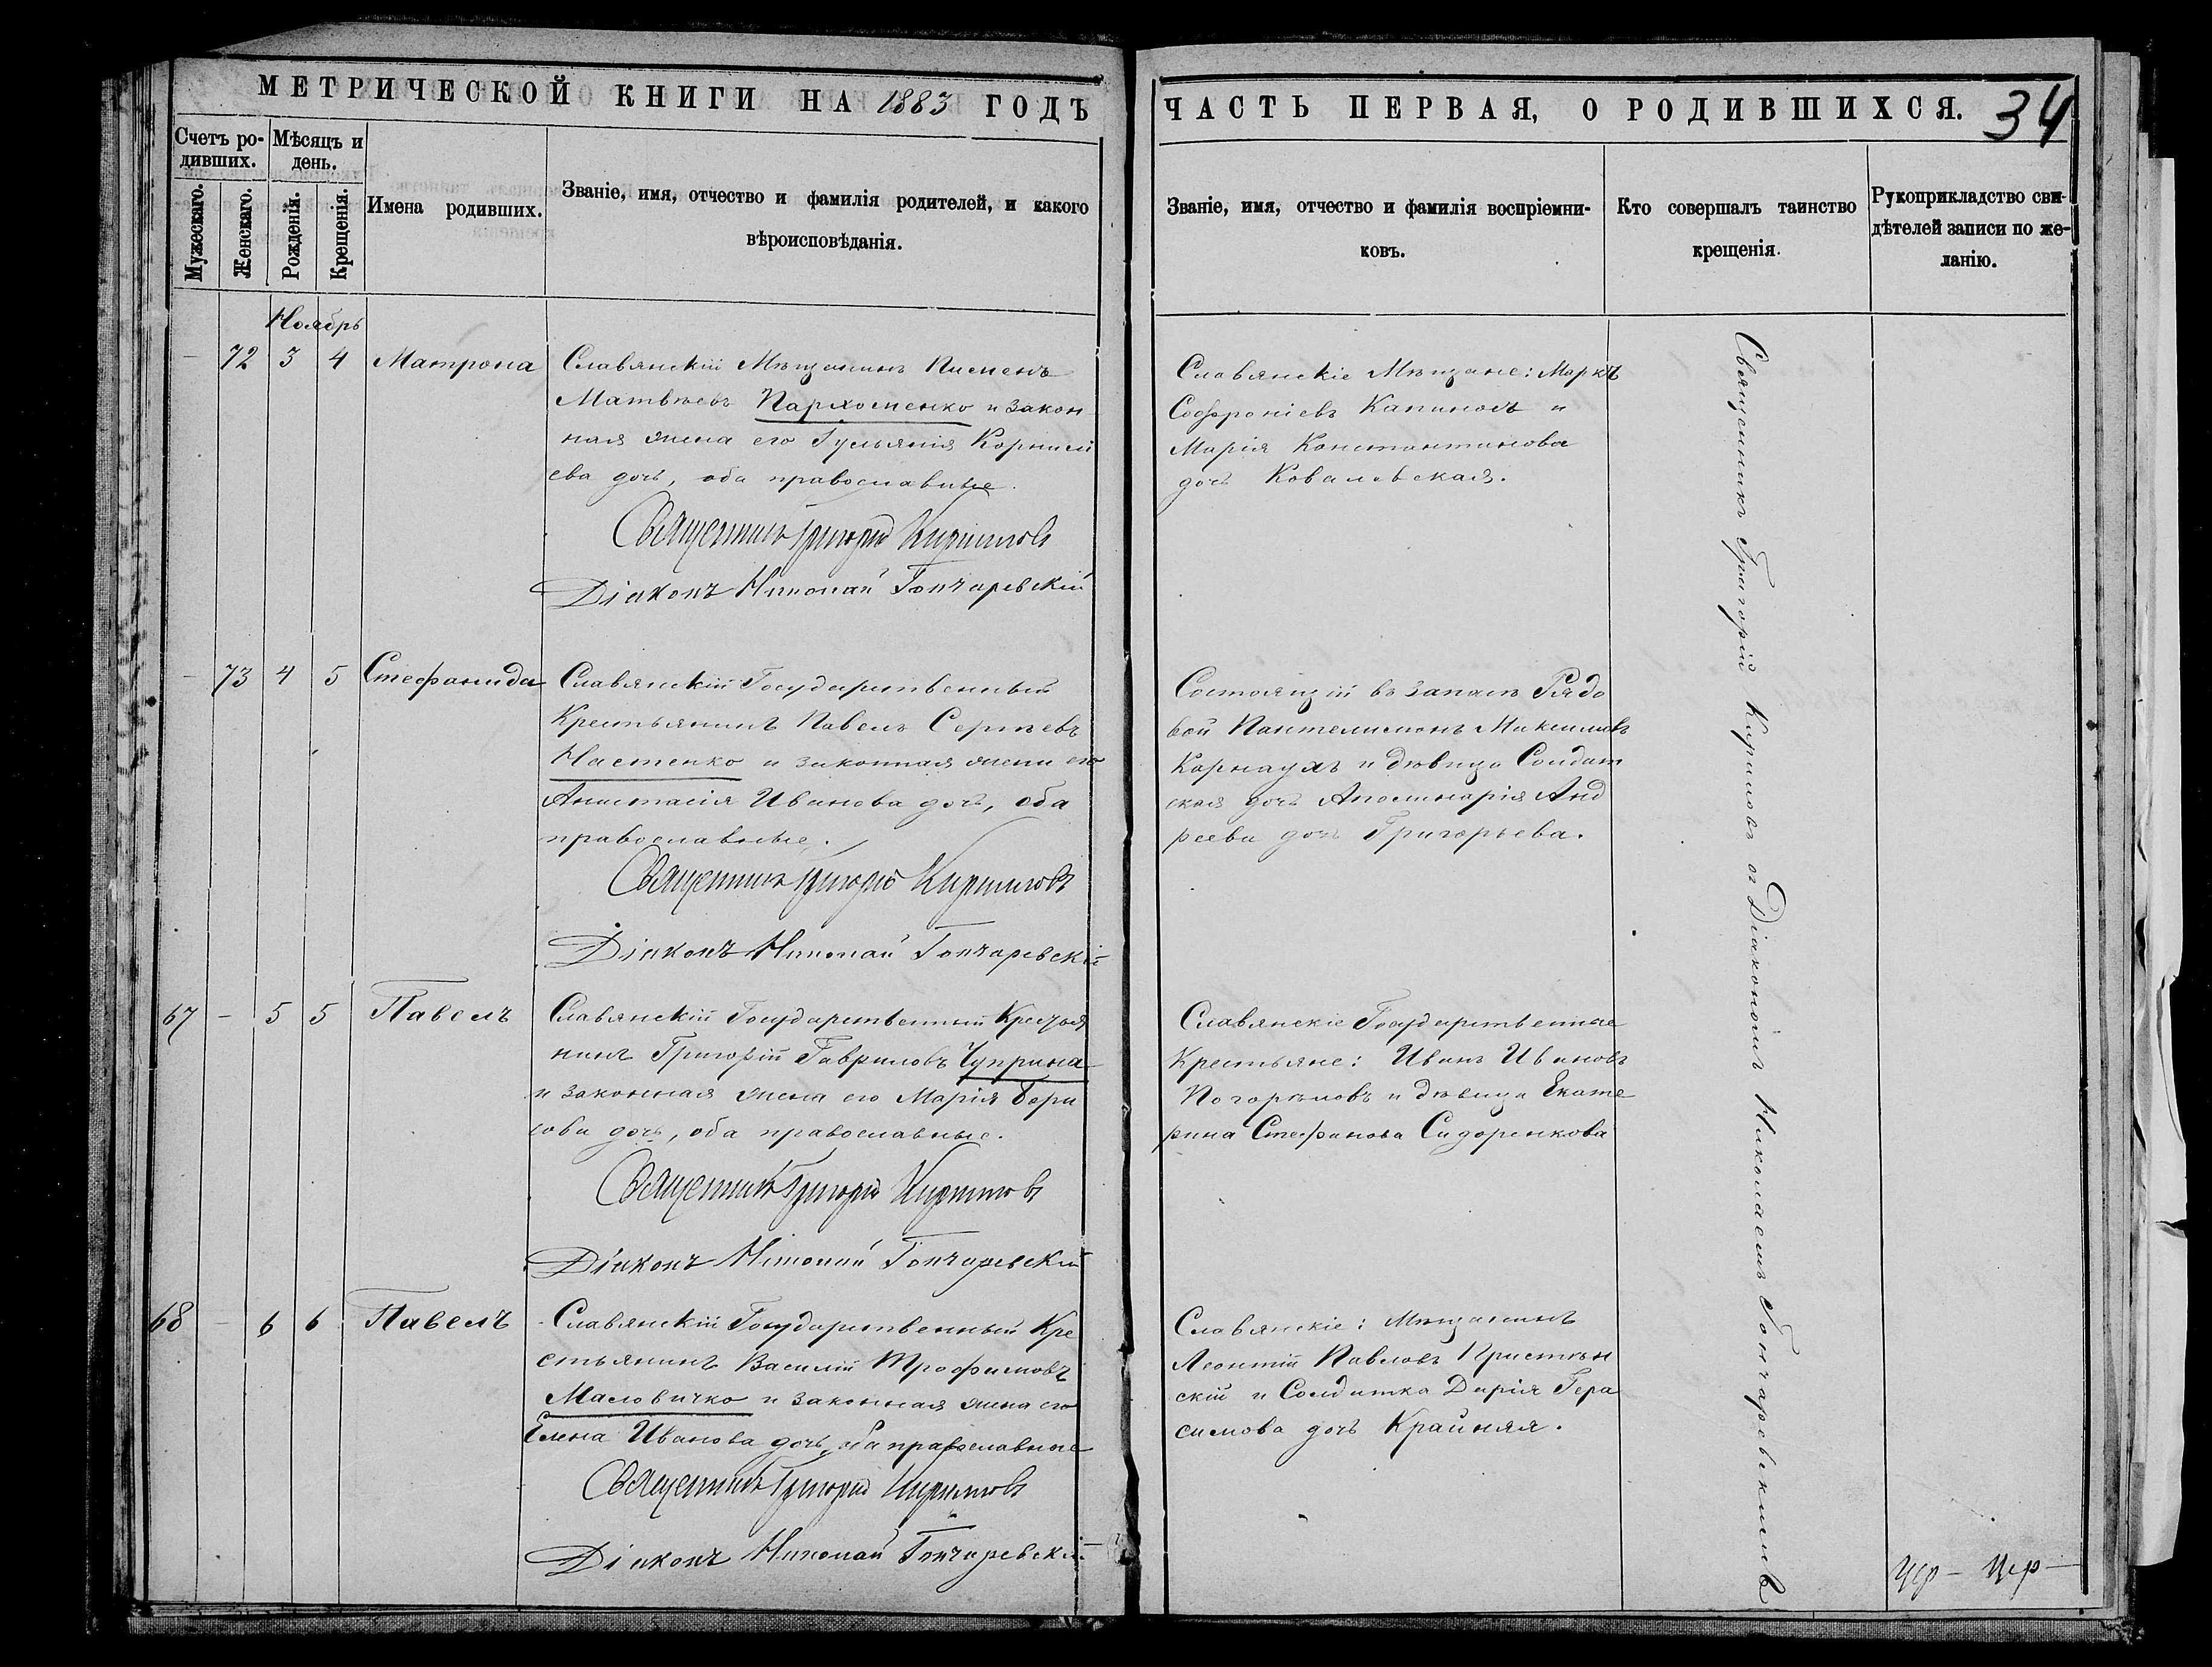 МЕТРИЧЕСКОЙ КНИГИ НА 1883 ГОДЪ
Счетъ ро-
дившихъ.
Мѣсяцъ и
день.
Мужескаго.
Женскаго.
Рожденія.
Крещенія.
Имена родившихъ.
Званіе, имя, отчество и фамилія родителей, и какого
вѣроисповѣданія.
Ноябрь
72 3 4 Матрона
Славянскій Мѣщанинъ Пименъ
Матвѣевъ Пархоменко и закон
ная жена его Іульянія Корнилі
ева дочь, оба православные.
Священникъ Григорій Кирилловъ
Діаконъ Николай Гончаревскій
73 4 5 Стефанида
Славянскій Государственный
Крестьянинъ Павелъ Сергѣевъ
Настенко и законная жена его
Анастасія Иванова дочь, оба
православные.
Священникъ Григорій Кирилловъ
Діаконъ Николай Гончаревскій
67 - 5 5 Павелъ
Славянскій Государственный Крестья
нинъ Григорій Гавриловъ Чуприна
и законная жена его Марія Бори
сова дочь, оба православные.
Священникъ Григорій Кирилловъ
Діаконъ Николай Гончаревскій
68 - 6 6 Павелъ
Славянскій Государственный Кре
стьянинъ Василій Трофимовъ
Масловичко и законная жена его
Елена Иванова дочь, оба православные
Священникъ Григорій Кирилловъ
Діаконъ Николай Гончаревскій
ЧАСТЬ ПЕРВАЯ, О РОДИВШИХСЯ. 34
Званіе, имя, отчество и фамилія воспріемни-
ковъ.
Кто совершалъ таинство
крещенія.
Рукоприкладство сви-
дѣтелей записи по же-
ланію.
Славянскіе Мѣщане: Маркъ
Софроніевъ Капиносъ и
Марія Константинова
дочь Ковалевская.
Состоящій въ запасѣ Рядо
вой Пантелимонъ Максимовъ
Карнаухъ и дѣвица Солдат
ская дочь Аполинарія Анд
реева дочь Григорьева.
Славянскіе Государственные
Крестьяне: Иванъ Ивановъ
Погорѣловъ и дѣвица Екате
рина Стефанова Сидоренкова
Славянскіе: Мѣщанинъ
Леонтій Павловъ
скій и Солдатка Дарія Гера
симова дочь Крайняя.
Священникъ Григорій Кириловъ съ Діакономъ Николаемъ Гончаревскимъ